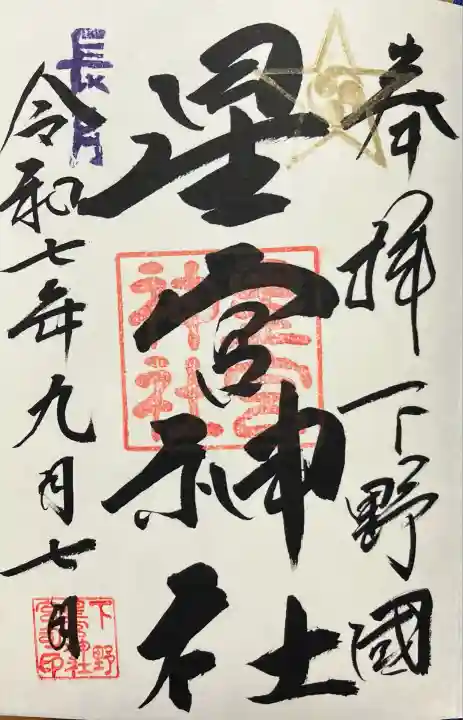 奉拝 下野國
星宮神社
長月
令和七年九月七日
星宮神社
下野
星宮神社